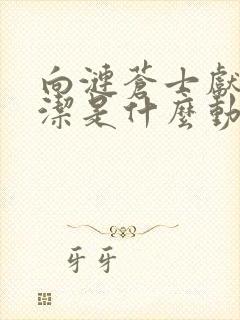 向漣蒼士獻
潔是什麼動
牙牙